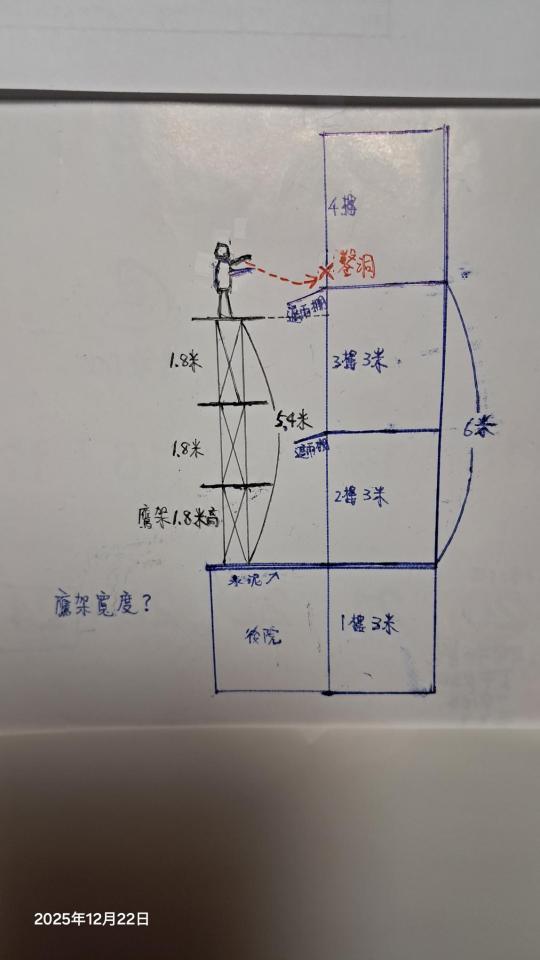 4樓
鑿洞
遮雨棚
1.8米
3樓3米
5.4米
6米
1.8米
遮雨棚
2樓3米
鷹架1.8米高
水泥↗
鷹架寬度?
後院
1樓3米
2025年12月22日